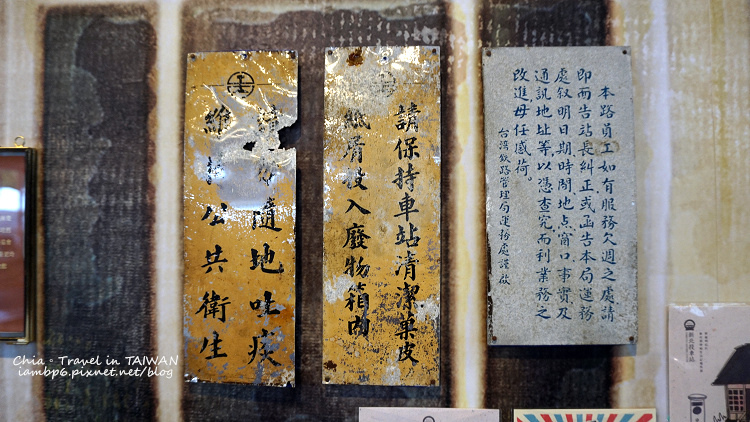 本路員工如有服務欠週之處請
即面告站長糾正或函告本局運務
處叙明日期時間地点窗口事實及
通訊地址等,以憑查究而利業務之
改進,毋任感荷。
台湾鉄路管理局運務處謹啟
請保持車站清潔菓皮
紙屑投入廢物箱內
請隨地吐痰
維公共衛生
新北投車站
Chia。Travel in TAIWAN
iambp6.pixnet.net/blog